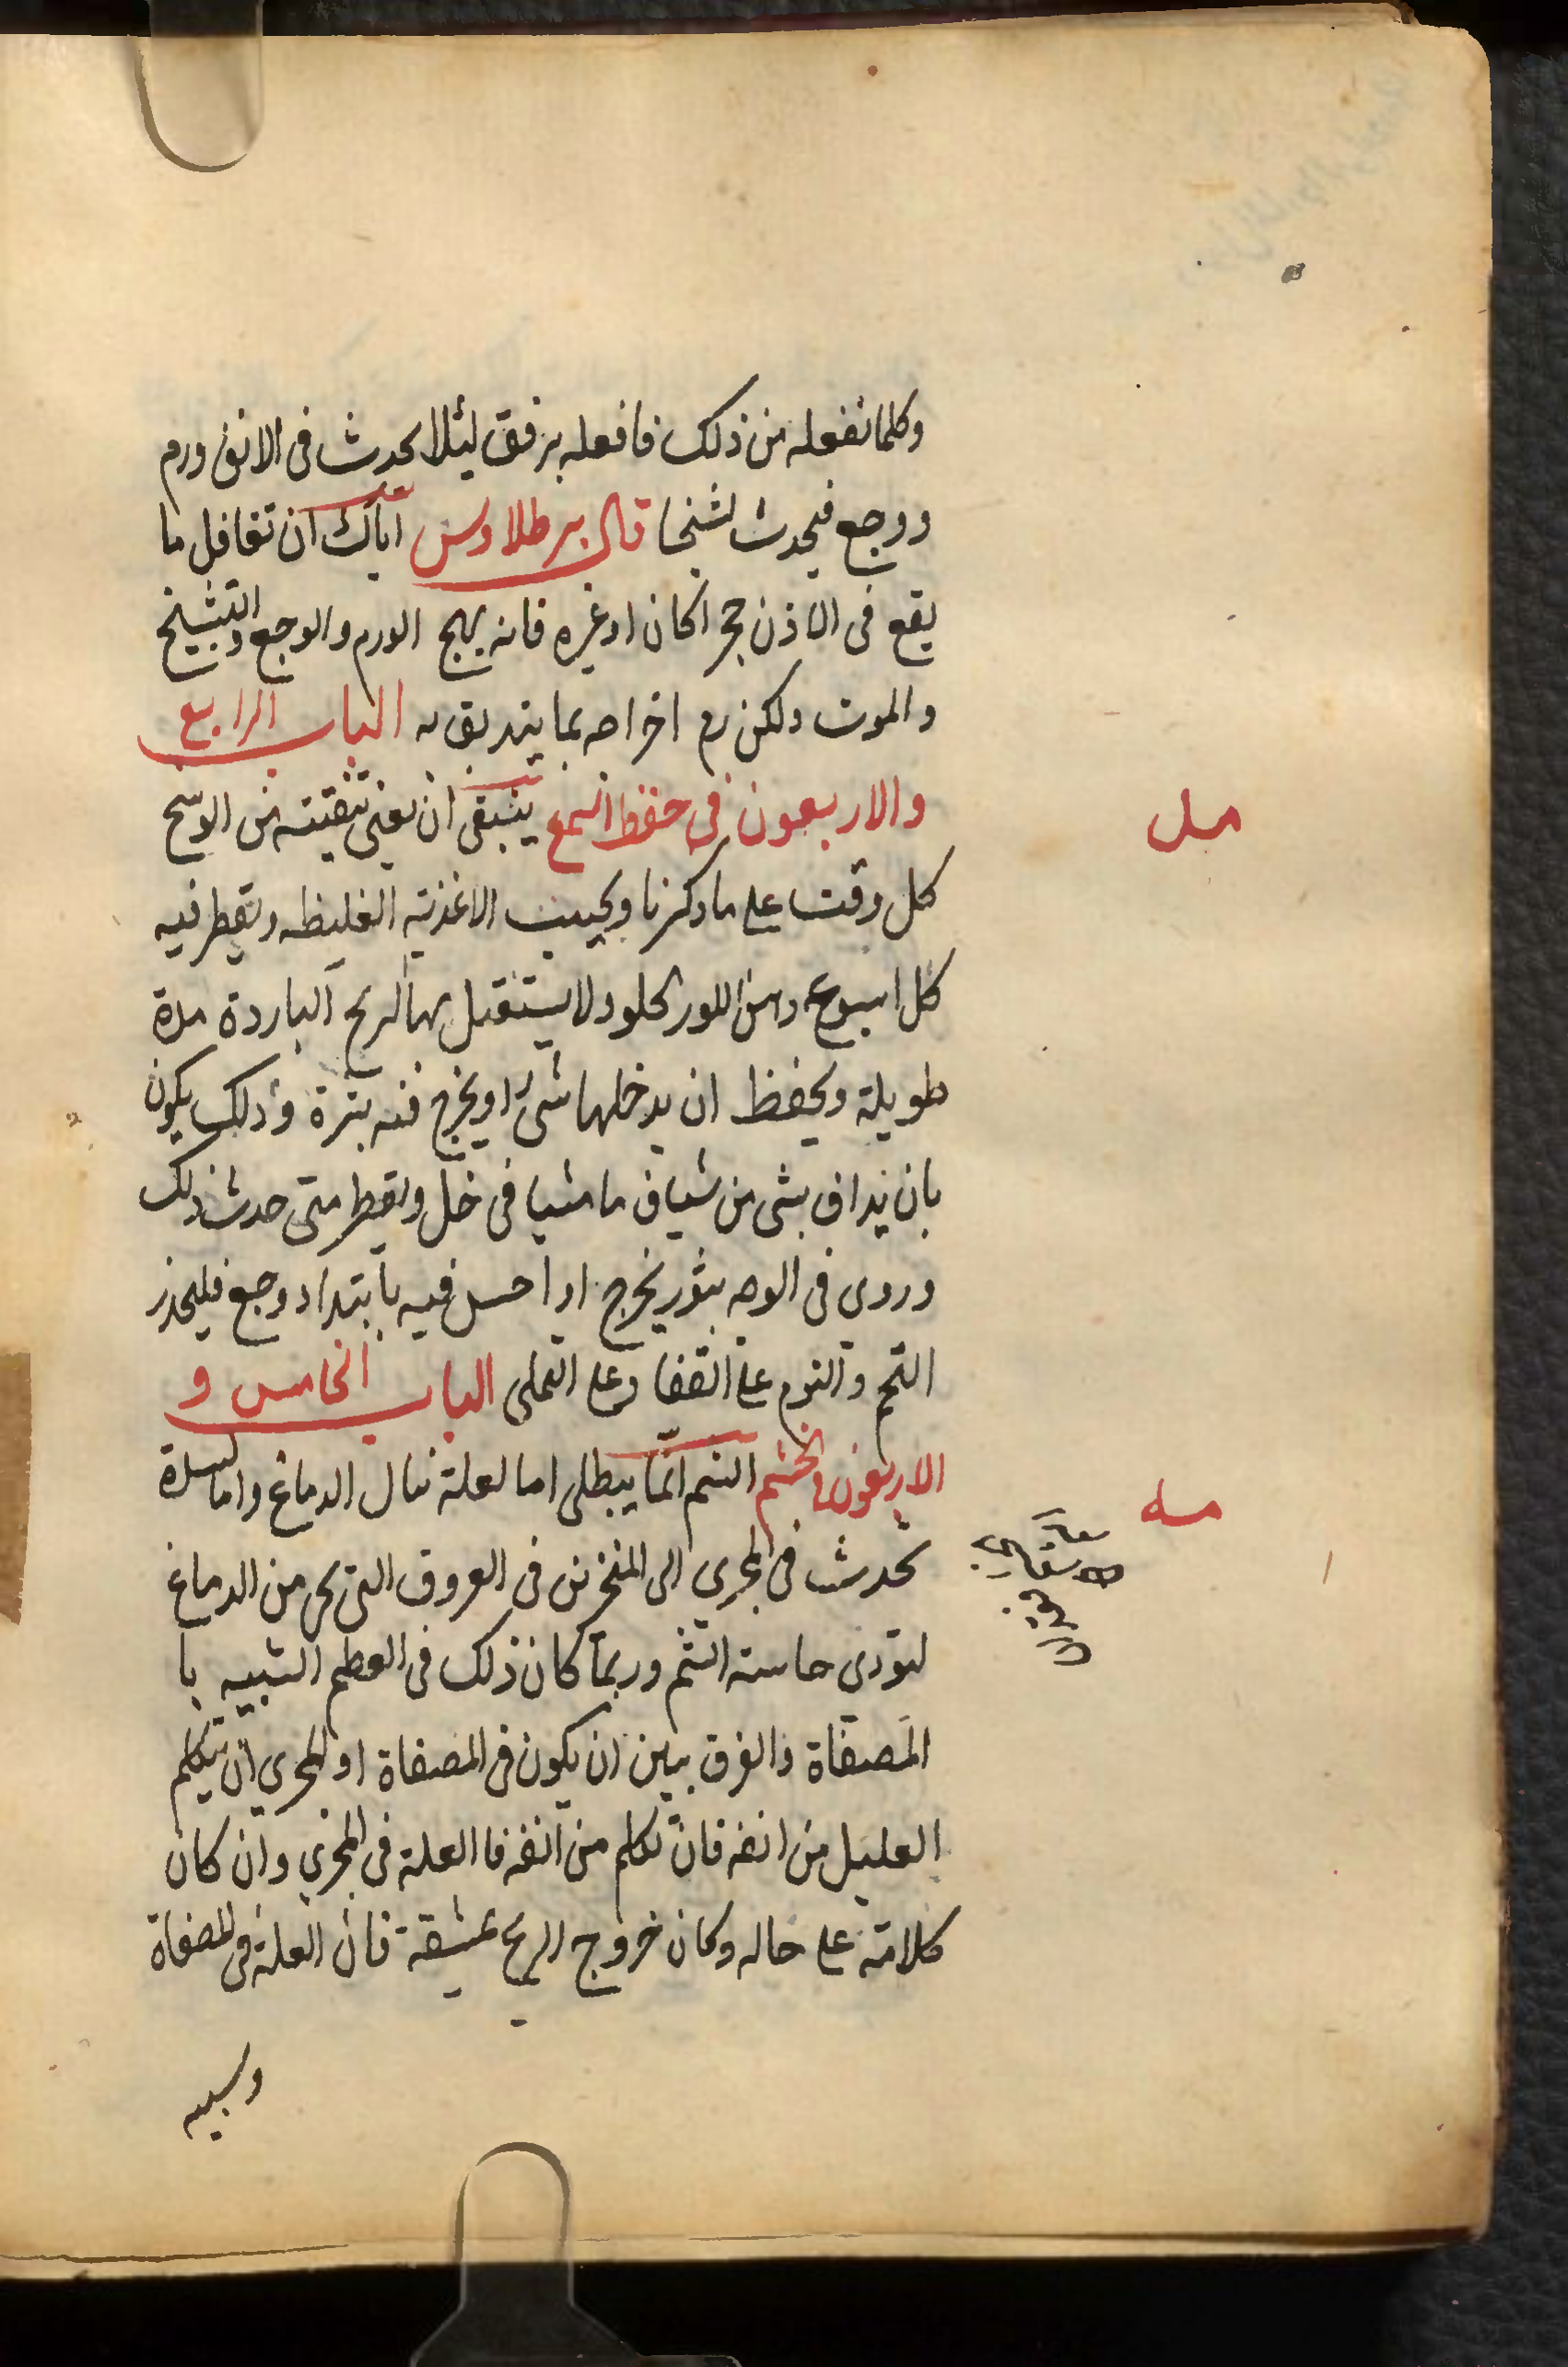 وكلما تفعله من ذلك فافعله برفق ليئلا يحدث في الانف ورم
ووجع فيحدث تشنجا قال برطلاوس اياك ان تغافل ما
يقع في الاذن حجرا كان او غيره فانه يهيج الورم والوجع والتشنج
والموت ولكن رم اخراجه بما يتدبق به الباب الرابع
والاربعون في حفظ السمع ينبغي ان يعني بتنقيته من الوسخ
مد
كل وقت على ما ذكرنا ويجيب الاغذية الغليظه وتقطر فيه
كل اسبوع دهن اللوز الحلو ولا يستقبل بها الريح الباردة مدة
طويلة ويحفظ ان يدخلها شيء او يخرج فنه بثرة وذلك يكون
بان يداف بشي من شياف ماميثا في خل ويقطر متى حدث ذلك
وروى في الوجه بثور يخرج اذا حس فيه بابتداء وجع فليحذر
التخم والنوم على القفا وعلى التملى الباب الخامس و
الاربعون الخشم الشم انما يبطل اما لعلة تنال الدماغ واما لسدة
مه
تحدث في المجرى الى المنخرين في العروق التي تجي من الدماغ
لتودي حاسة الشم وربما كان ذلك في العظم الشبيه با
المصفاة والفرق بيين ان يكون في المصفاة او المجرى ان يتكلم
العليل من انفه فان تكلم من انفه فا العلة في المجرى وان كان
كلامه على حاله وكان خروج الريح بمشقة فان العلة في المصفاة
وسببه